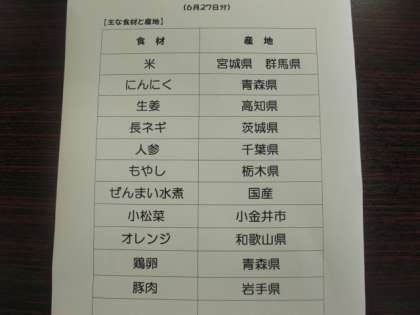 (6月27日分)
【主な食材と産地】
食材 産地
米 宮城県 群馬県
にんにく 青森県
生姜 高知県
長ネギ 茨城県
人参 千葉県
もやし 栃木県
ぜんまい水煮 国産
小松菜 小金井市
オレンジ 和歌山県
鶏卵 青森県
豚肉 岩手県